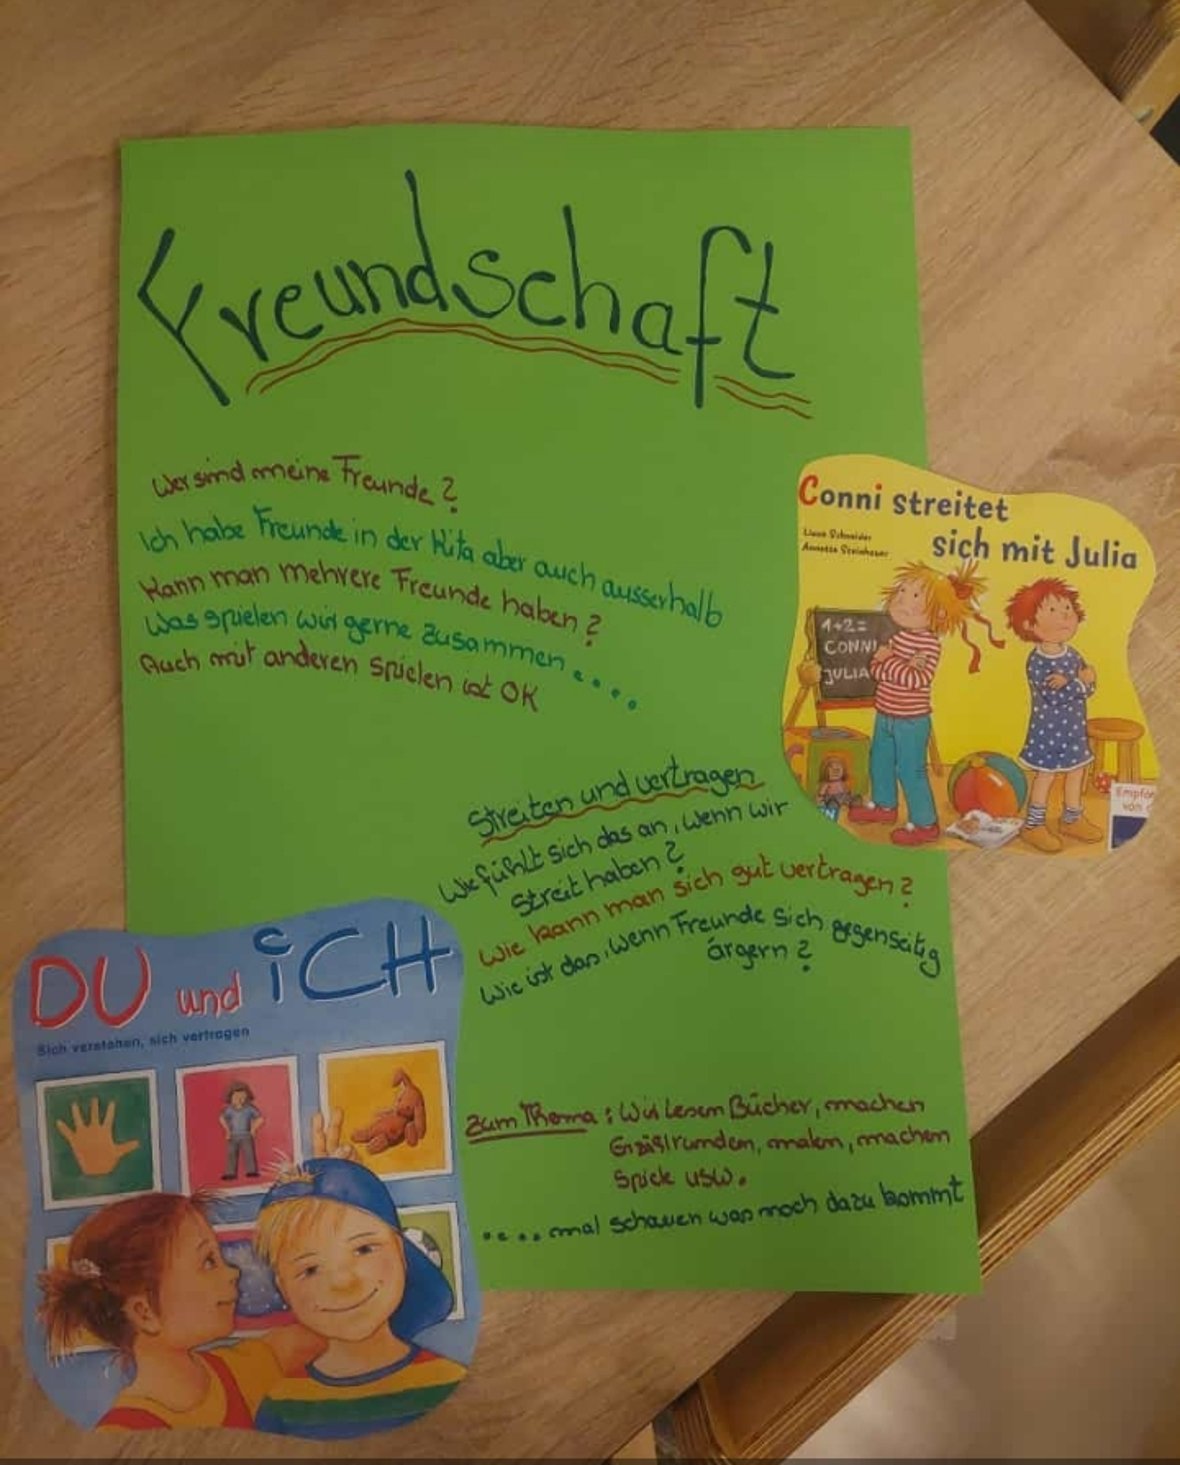 Freundschaft
Wer sind meine Freunde?
Ich habe Freunde in der Kita aber auch ausserhalb
Kann man mehrere Freunde haben?
Was spielen wir gerne zusammen....
Auch mit anderen spielen ist OK
Conni streitet
sich mit Julia
Liane Schneider
Annette Steinhauer
1+2=
CONNI
JULIA
Empfoh
von
Streiten und vertragen
Wie fühlt sich das an, wenn wir
Streit haben?
Wie kann man sich gut vertragen?
Wie ist das, wenn Freunde sich gegenseitig
ärgern?
DU und iCH
Sich verstehen, sich vertragen
Zum Thema: Wir lesen Bücher, machen
Erzählrunden, malen, machen
Spiele usw.
.... mal schauen was noch dazu kommt